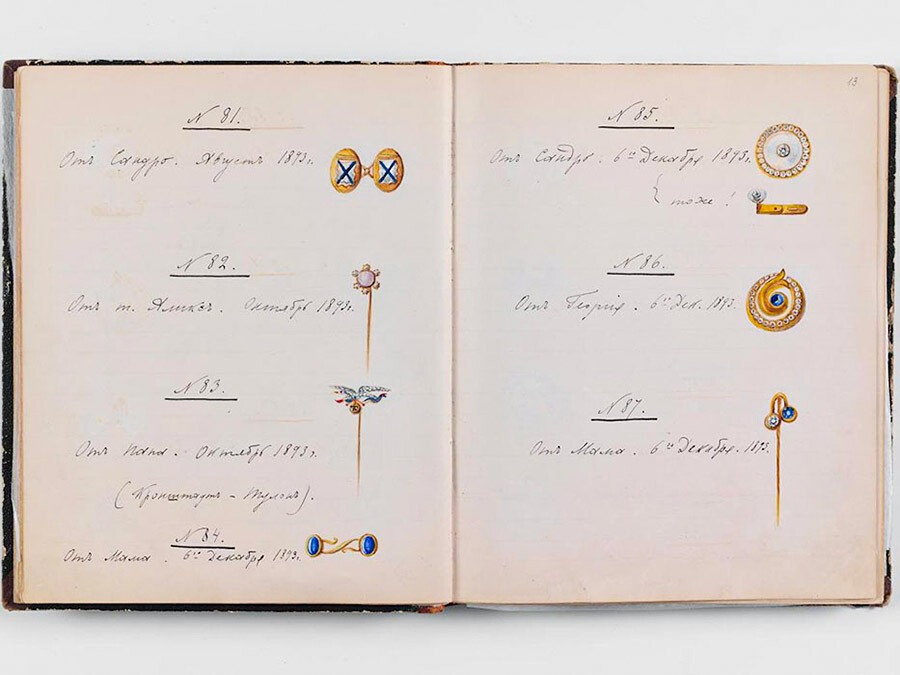 N 81.
Отъ Сандро. Августъ 1893 г.
N 82.
Отъ т. Аликсъ. Октябрь 1893 г.
N 83.
Отъ Папа. Октябрь 1893 г.
(Кронштадтъ - Тулонъ).
N 84.
Отъ Мама. 6го Декабря 1893 г.
13
N 85.
Отъ Сандро. 6го Декабря 1893 г.
{ тоже!
N 86.
Отъ Георгія. 6го Дек. 1893.
N 87.
Отъ Мама. 6го Декабря. 1893.